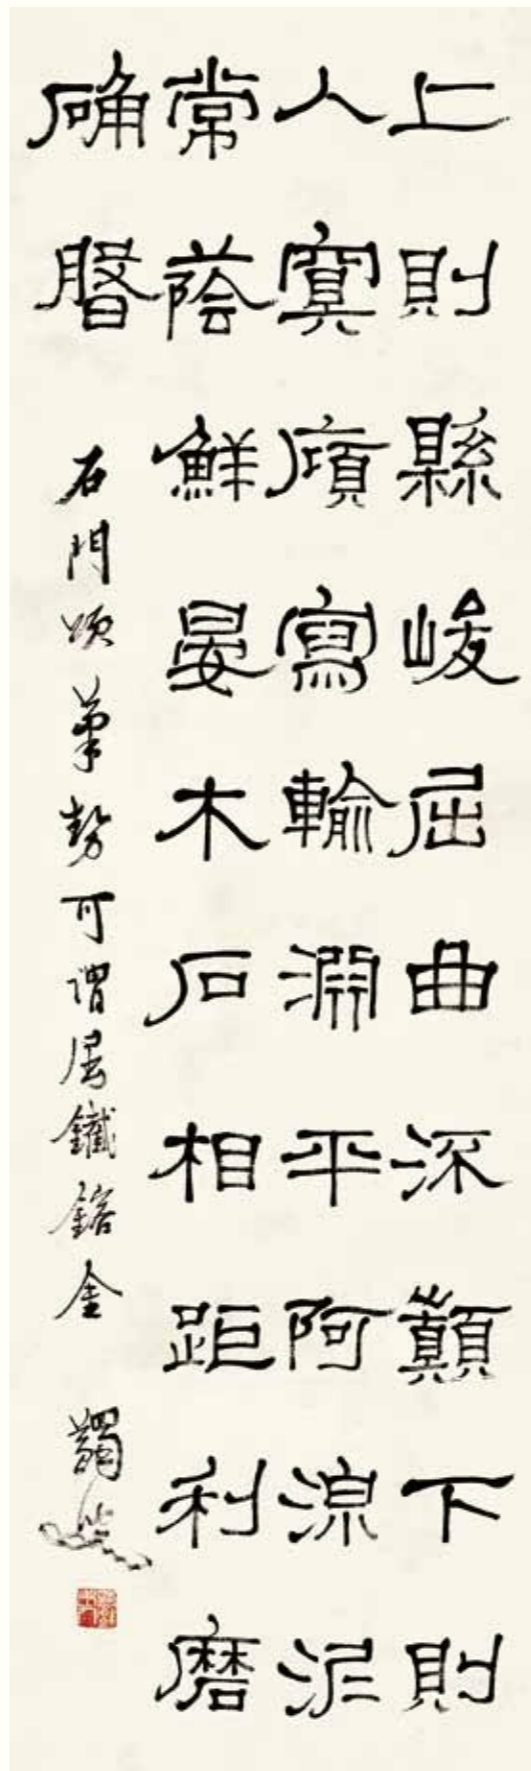 上則縣峻屈曲流巔下則
入冥廎寫輸淵平阿湶泥
常蔭鮮晏木石相距利磨
确磐
石門頌筆勢可謂屈鐵鎔金 蠲叟